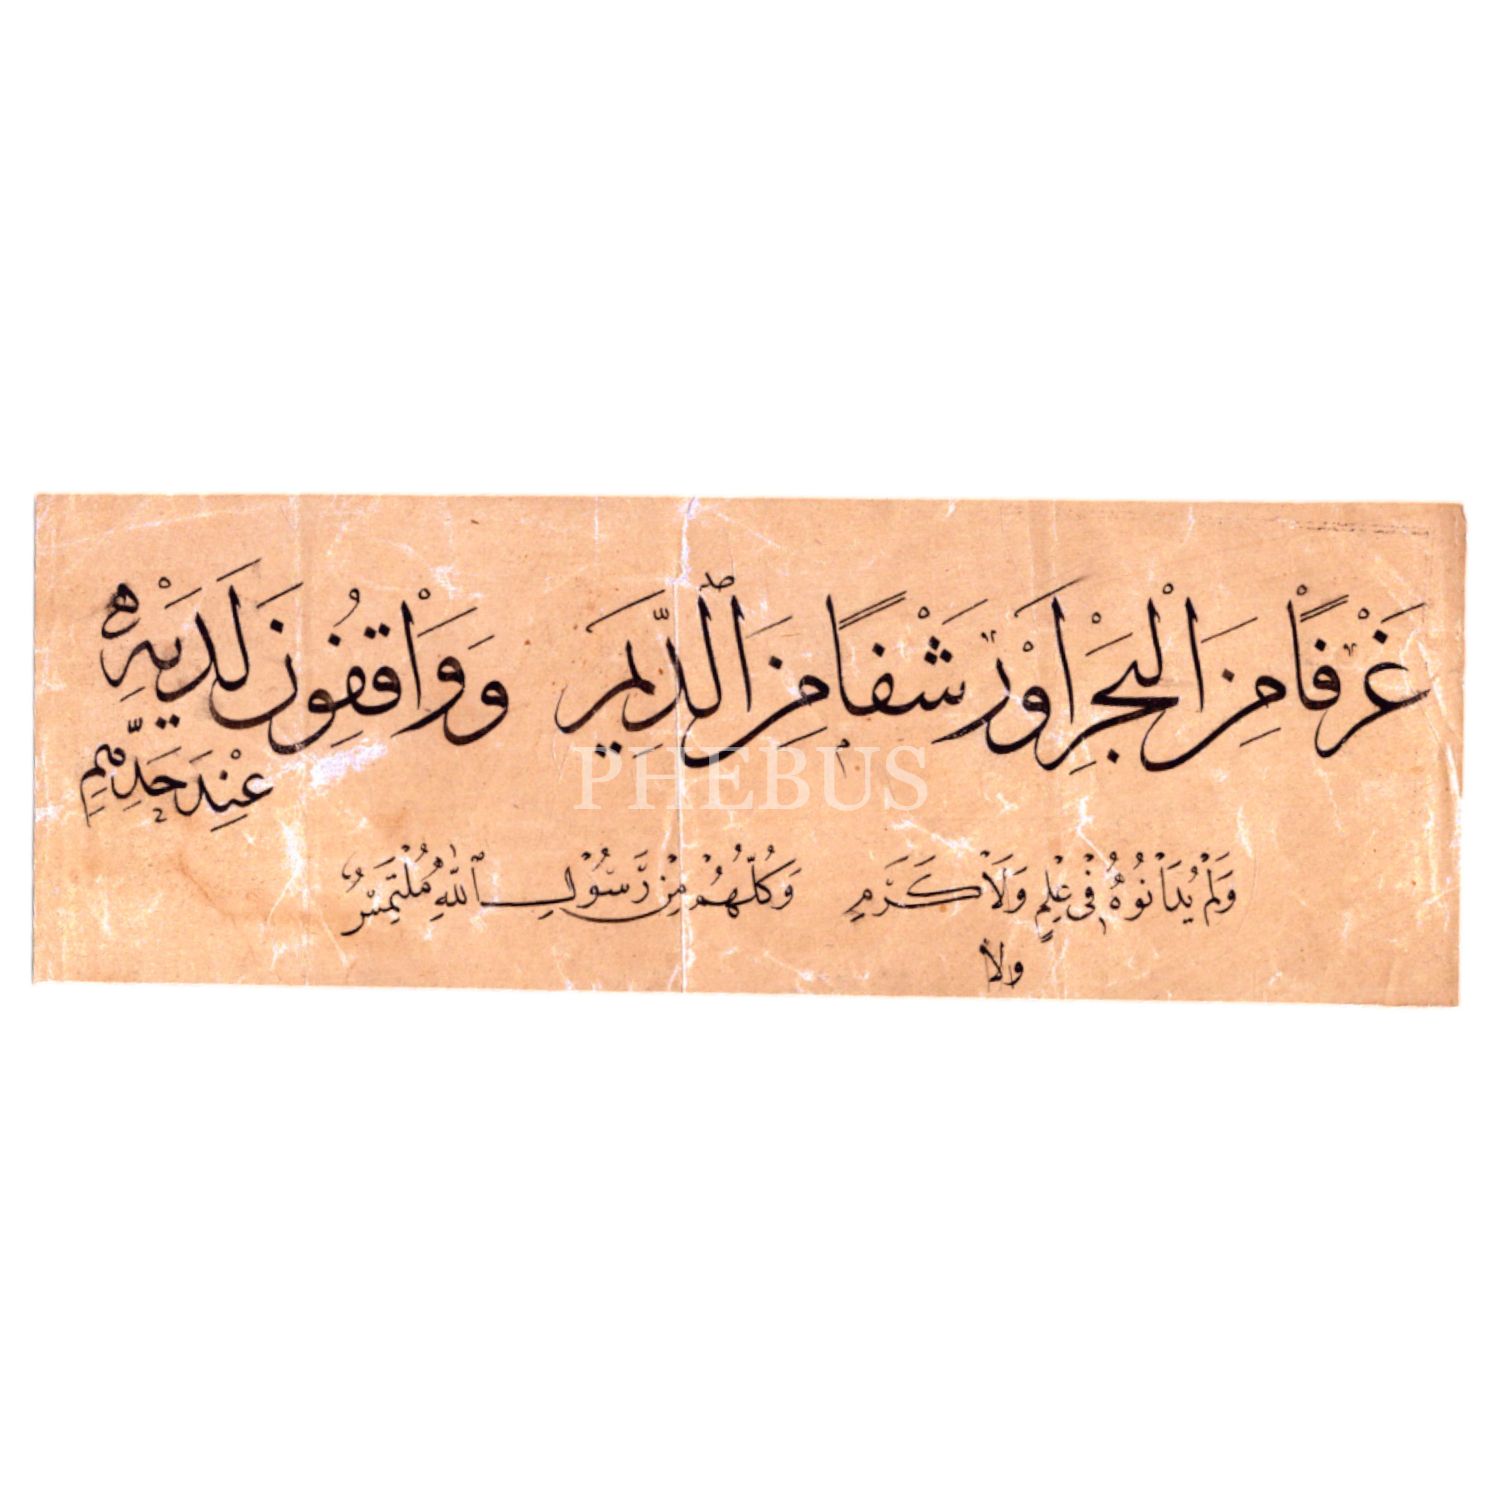 غَرْفًا مِنَ الْبَحْرِ اَوْ رَشْفًا مِنَ الدِّيَمِ وَوَاقِفُونَ لَدَيْهِ
عِنْدَ حَدِّهِمِ
PHEBUS
وَلَمْ يُدَانُوهُ فِى عِلْمٍ وَلَا كَرَمِ وَكُلُّهُمْ مِنْ رَسُولِ اللّٰهِ مُلْتَمِسٌ
ولا